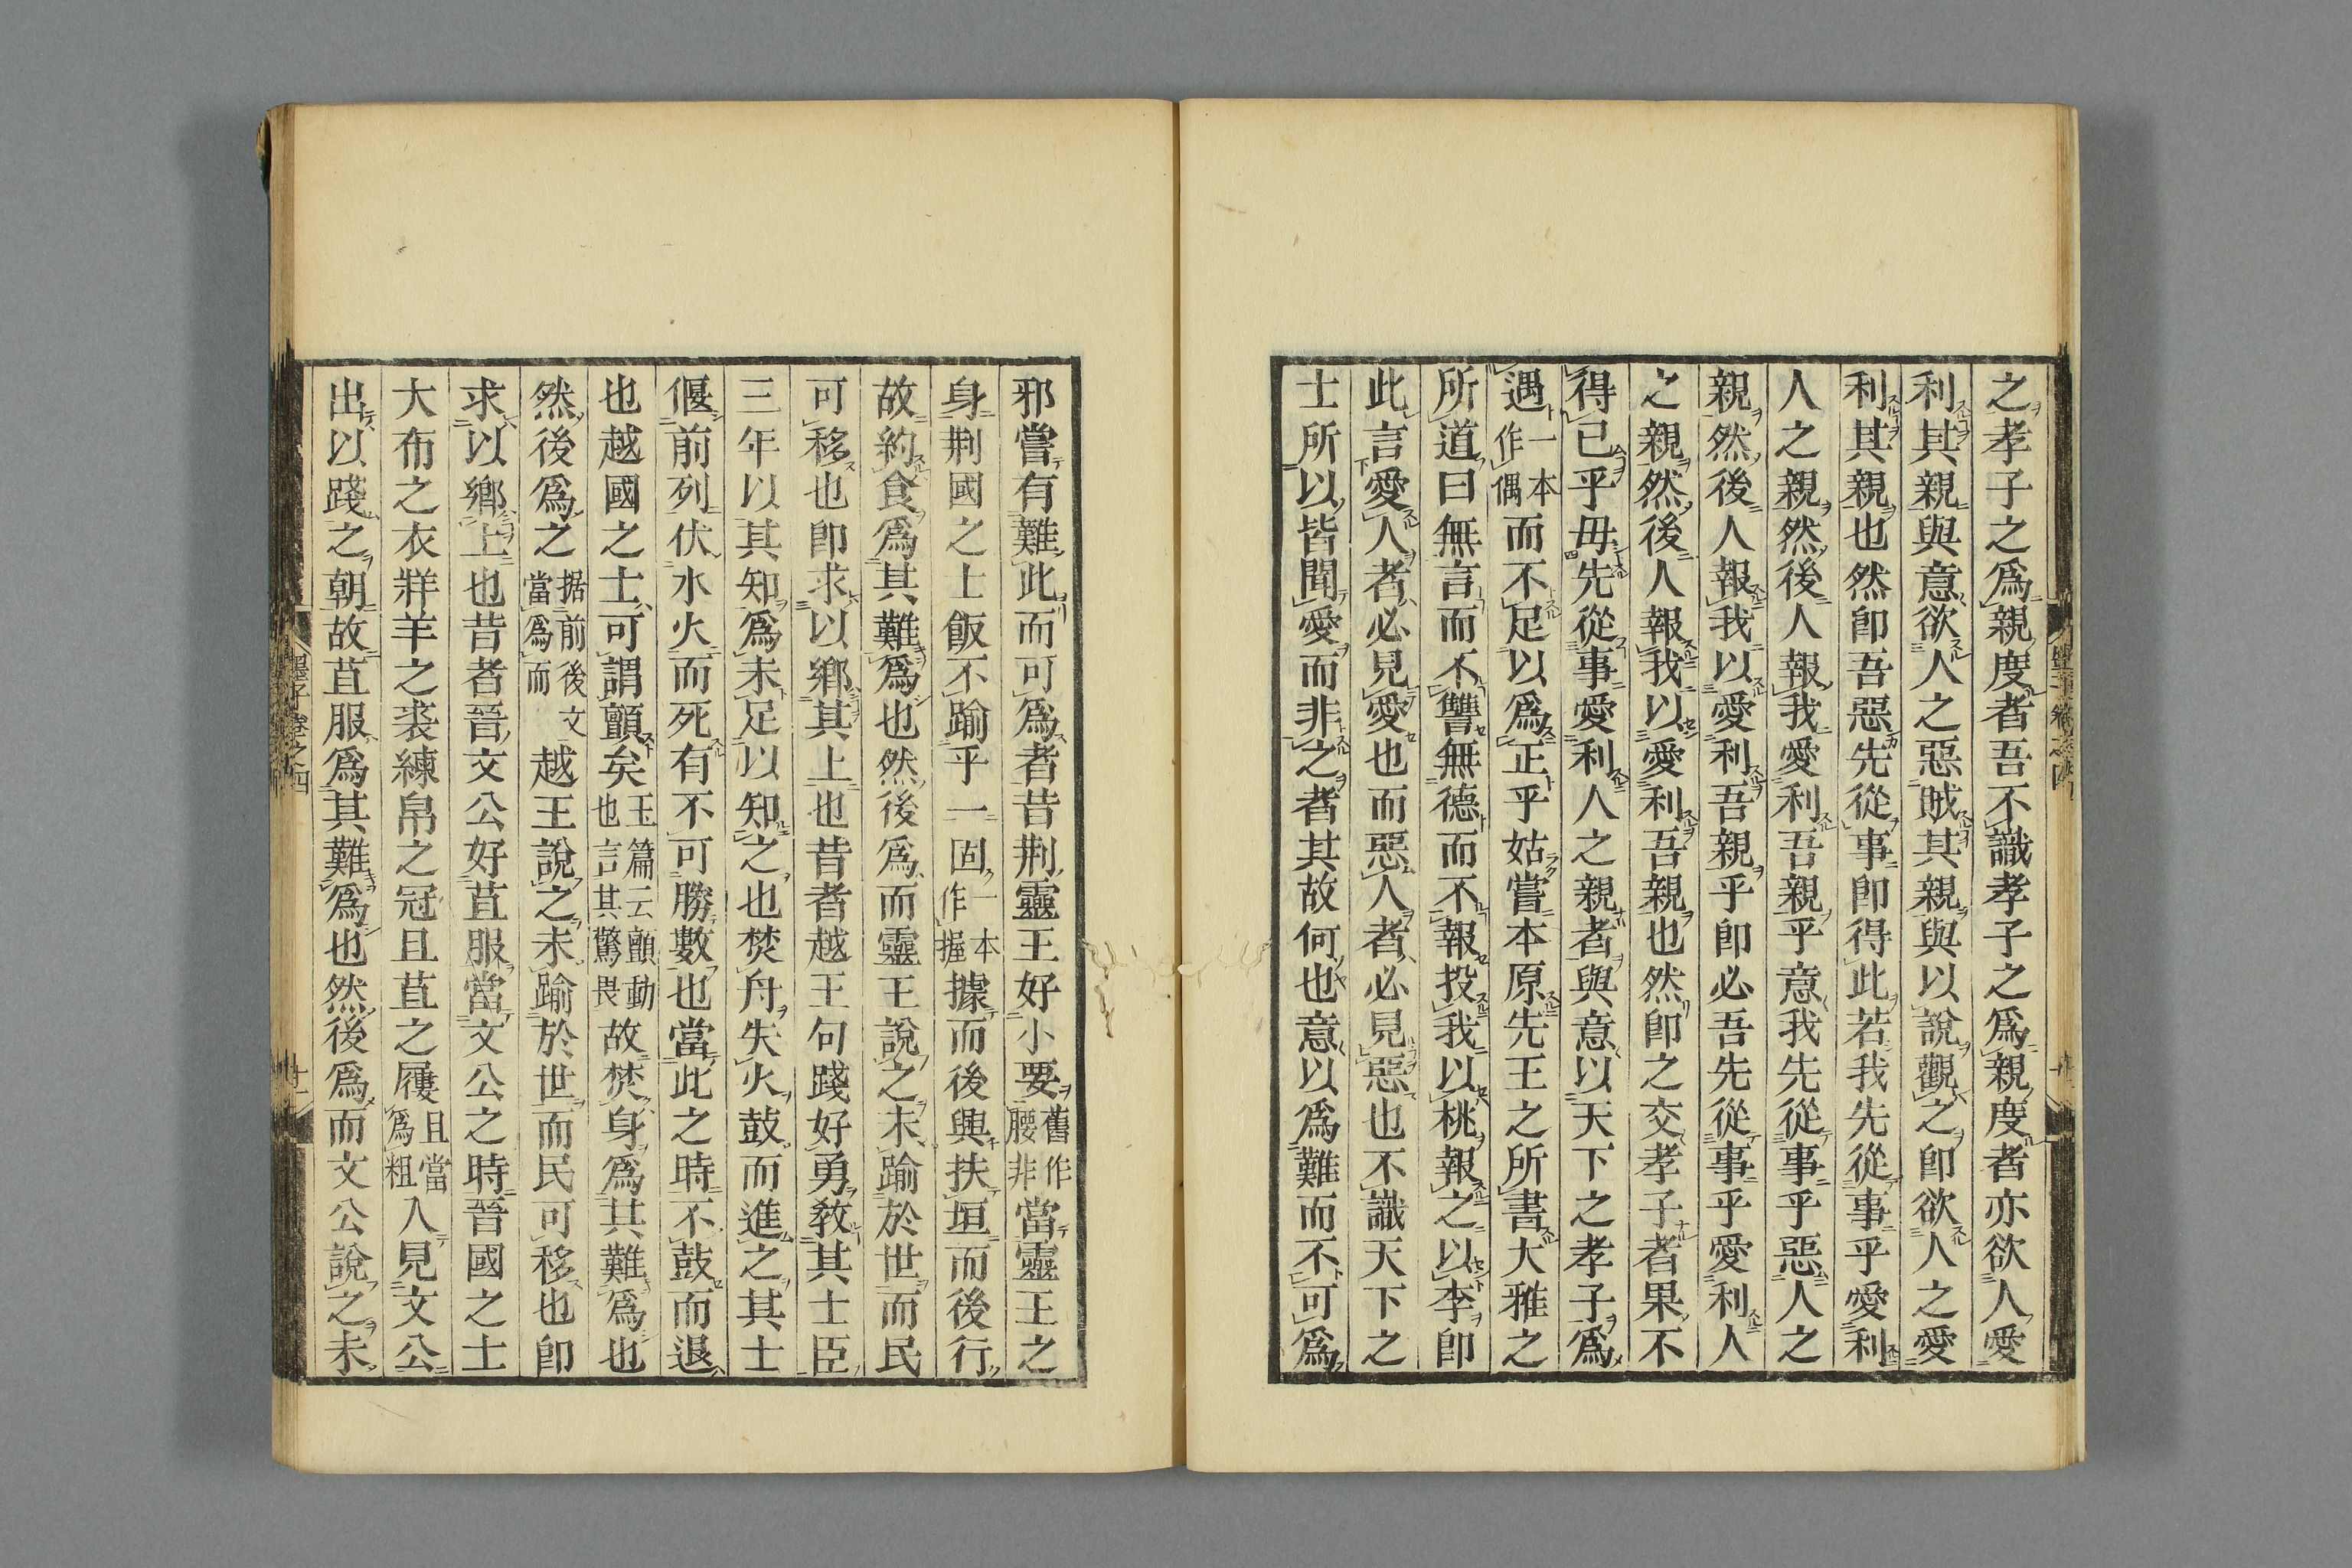 之孝子之爲親度者吾不識孝子之爲親度者亦欲人愛
利其親與意欲人之惡賊其親與以說觀之卽欲人之愛
利其親也然卽吾惡先從事卽得此若我先從事乎愛利
人之親然後人報我愛利吾親乎意我先從事乎惡人之
親然後人報我以愛利吾親乎卽必吾先從事乎愛利人
之親然後人報我以愛利吾親也然卽之交孝子者果不
得已乎毋先從事愛利人之親者與意以天下之孝子爲
遇一本作偶而不足以爲正乎姑嘗本原先王之所書大雅之
所道曰無言而不讐無德而不報投我以桃報之以李卽
此言愛人者必見愛也而惡人者必見惡也不識天下之
士所以皆聞愛而非之者其故何也意以爲難而不可爲
邪嘗有難此而可爲者昔荆靈王好小要舊作腰非當靈王之
身荆國之士飯不踰乎一固一本作握據而後興扶垣而後行
故約食爲其難爲也然後爲而靈王說之未踰於世而民
可移也卽求以鄉其上也昔者越王句踐好勇敎其士臣
三年以其知爲未足以知之也焚舟失火鼓而進之其士
偃前列伏水火而死有不可勝數也當此之時不鼓而退
也越國之士可謂顫矣玉篇云顫動也言其驚畏故焚身爲其難爲也
然後爲之据前後文當爲而越王說之未踰於世而民可移也卽
求以鄉上也昔者晉文公好苴服當文公之時晉國之士
大布之衣牂羊之裘練帛之冠且苴之屨且當爲粗入見文公
出以踐之朝故苴服爲其難爲也然後爲而文公說之未
墨子卷之四